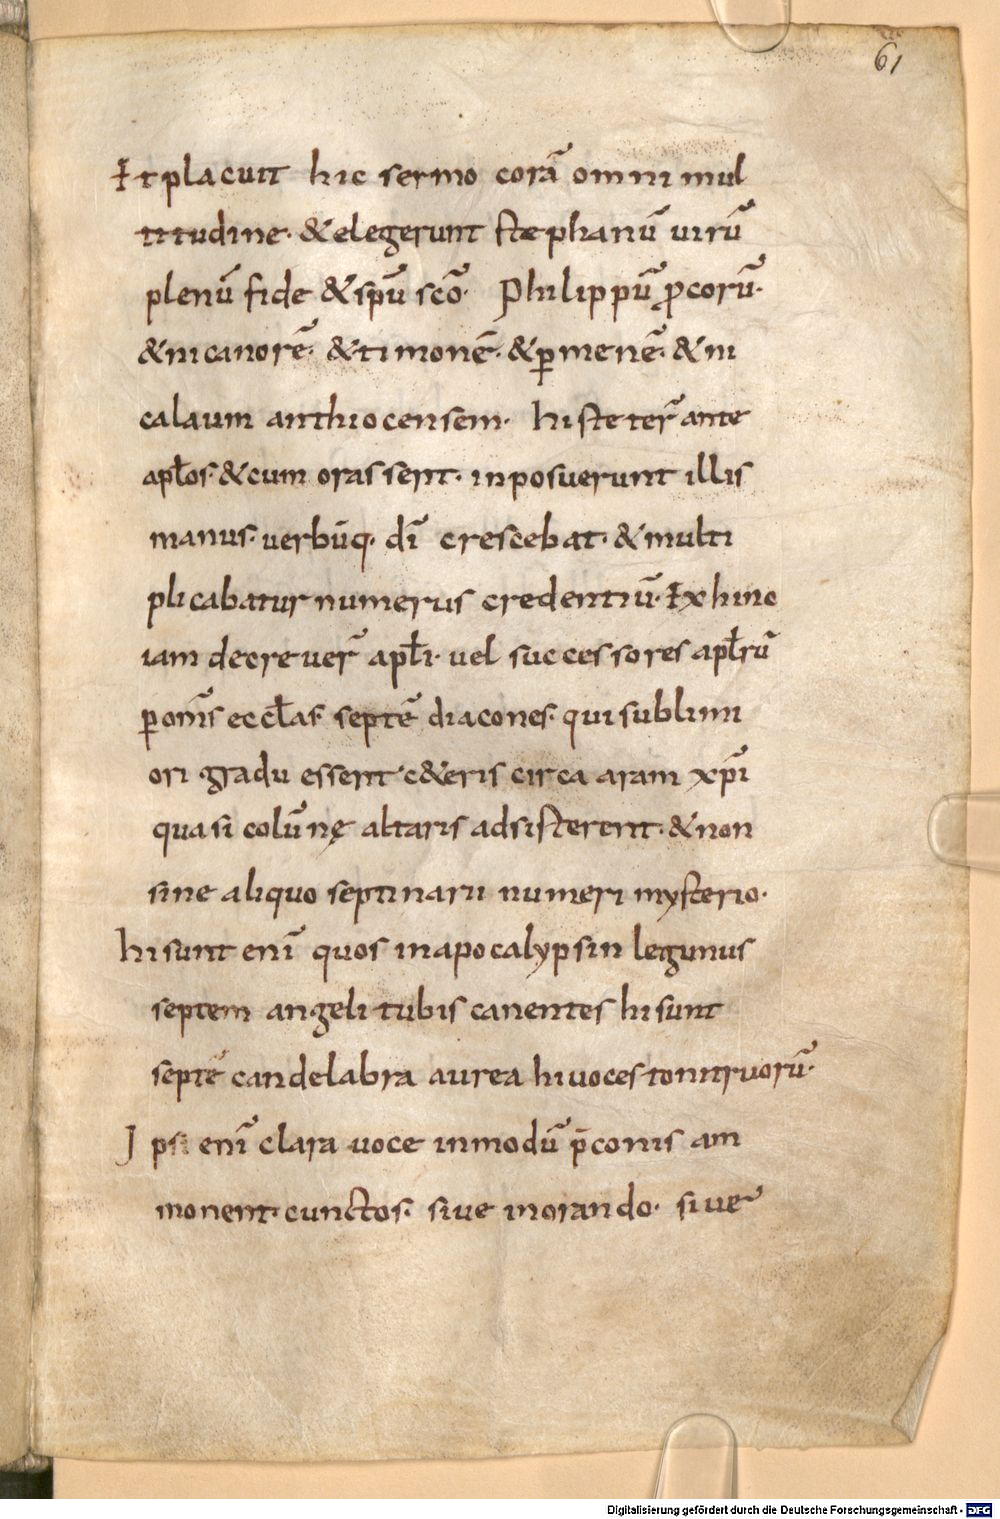 61
Et placuit hic sermo corā omni mul
titudine· & elegerunt stephanū uirū
plenū fide & spū scō· Philippū ꝓcorū·
& nicanorē· & timonē· & ꝑmenē· & ni
calaum anthiocensem· hi steter̄ ante
apl̄os· & cum orassent· inposuerunt illis
manus· uerbūq· dī crescebat· & multi
plicabatur numerus credentiū· Ex hinc
iam decreuer̄ apl̄i· uel successores apl̄rū
ꝑ om̄s eccl̄as· septē diacones· qui sublimi
ori gradu essent c&eris circa aram xp̄i
quasi colūnę altaris adsisterent· & non
sine aliquo septinarii numeri mysterio·
hi sunt enī quos in apocalypsin legimus
septem angeli tubis canentes hi sunt
septē candelabra aurea hi uoces tonitruorū·
Ipsi enī clara uoce in modū p̄conis am
monent· cunctos· siue in orando· siue
Digitalisierung gefördert durch die Deutsche Forschungsgemeinschaft - DFG